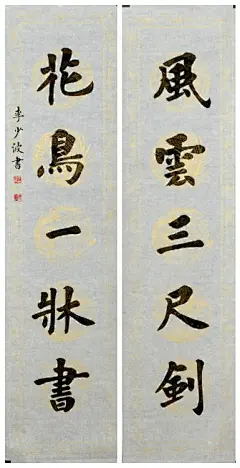 風雲三尺劍
花鳥一牀書
李少波書